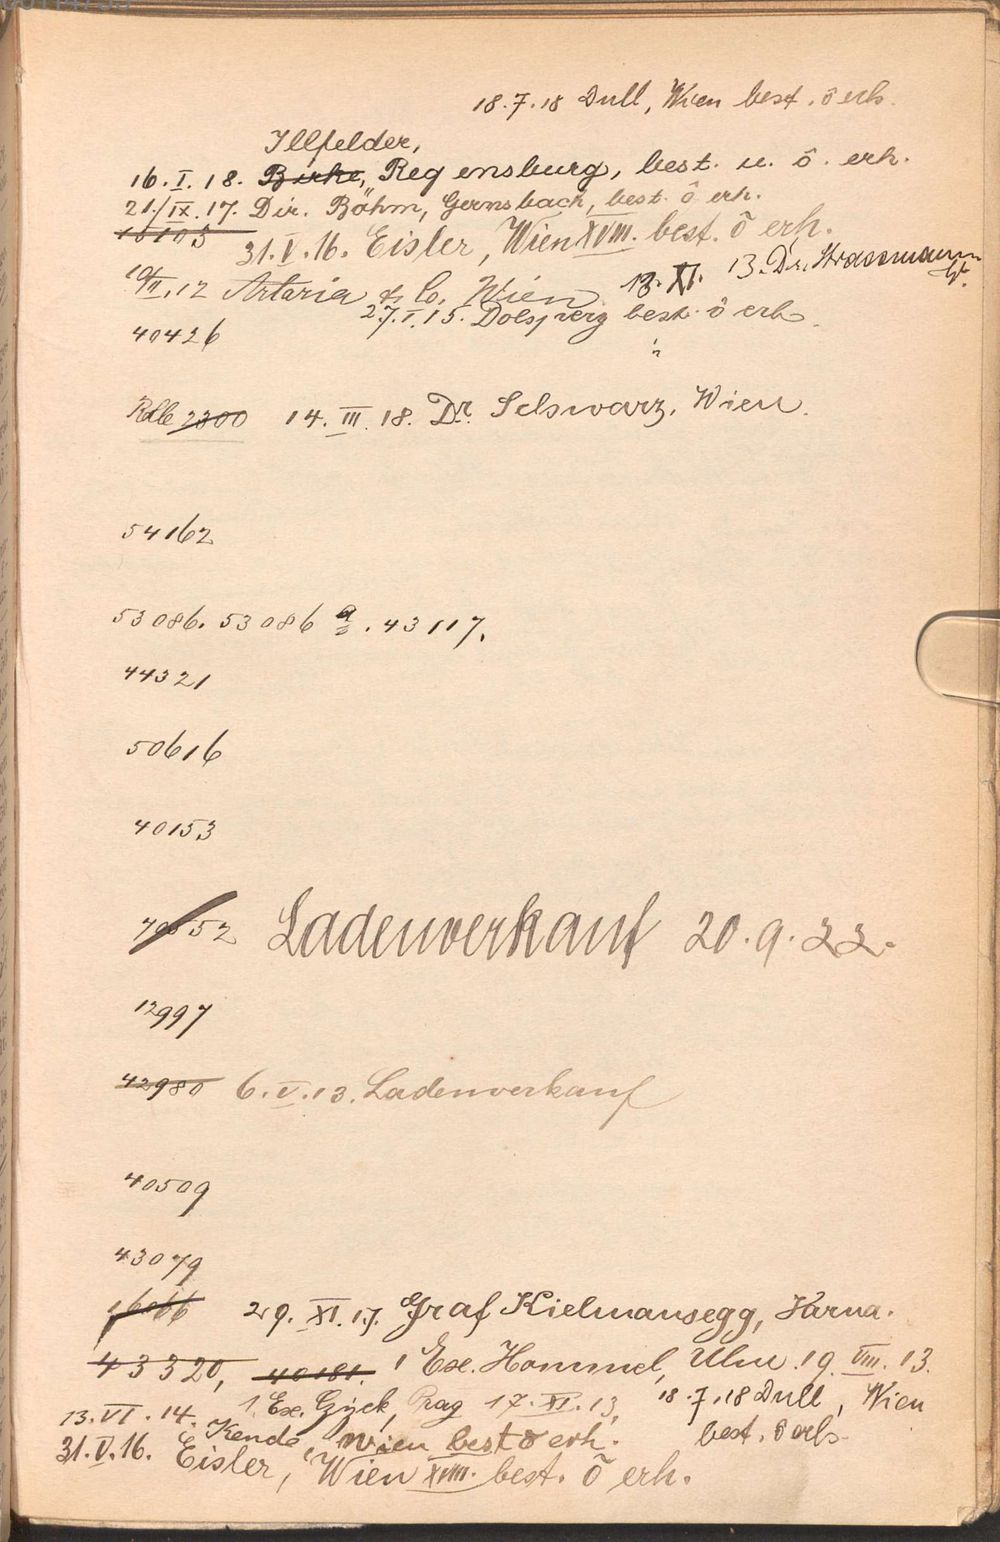 18.7.18 Dull, Wien best. ō erh.
Illfelder,
16. I. 18. Birke, Regensburg, best. u. ō. erh.
21./IX. 17. Dir. Böhm, Gernsbach, best. ō erh.
31. V. 16. Eisler, Wien XVIII. best. ō erh.
13. XI. 13. Dr. Strassmann
II. 12 Artaria & Co. Wien
27. I. 15. best. ō erh.
40426
2300 14. III. 18. Dr. Schwarz, Wien.
54162
53086. 53086 a. 43117.
44321
50616
40153
Ladenverkauf 20.9.22.
12997
42980 6. V. 13. Ladenverkauf
40509
43079
29. XI. 17. Graf Kielmansegg, Varna.
43320, 40181. 1 Ex. Hommel, Ulm. 19. VIII. 13.
1 Ex. Prag 17. XI. 13, 18.7.18 Dull, Wien
13. VI. 14. Kende, Wien best ō erh. best. ō erh.
31. V. 16. Eisler, Wien XVIII. best. ō erh.